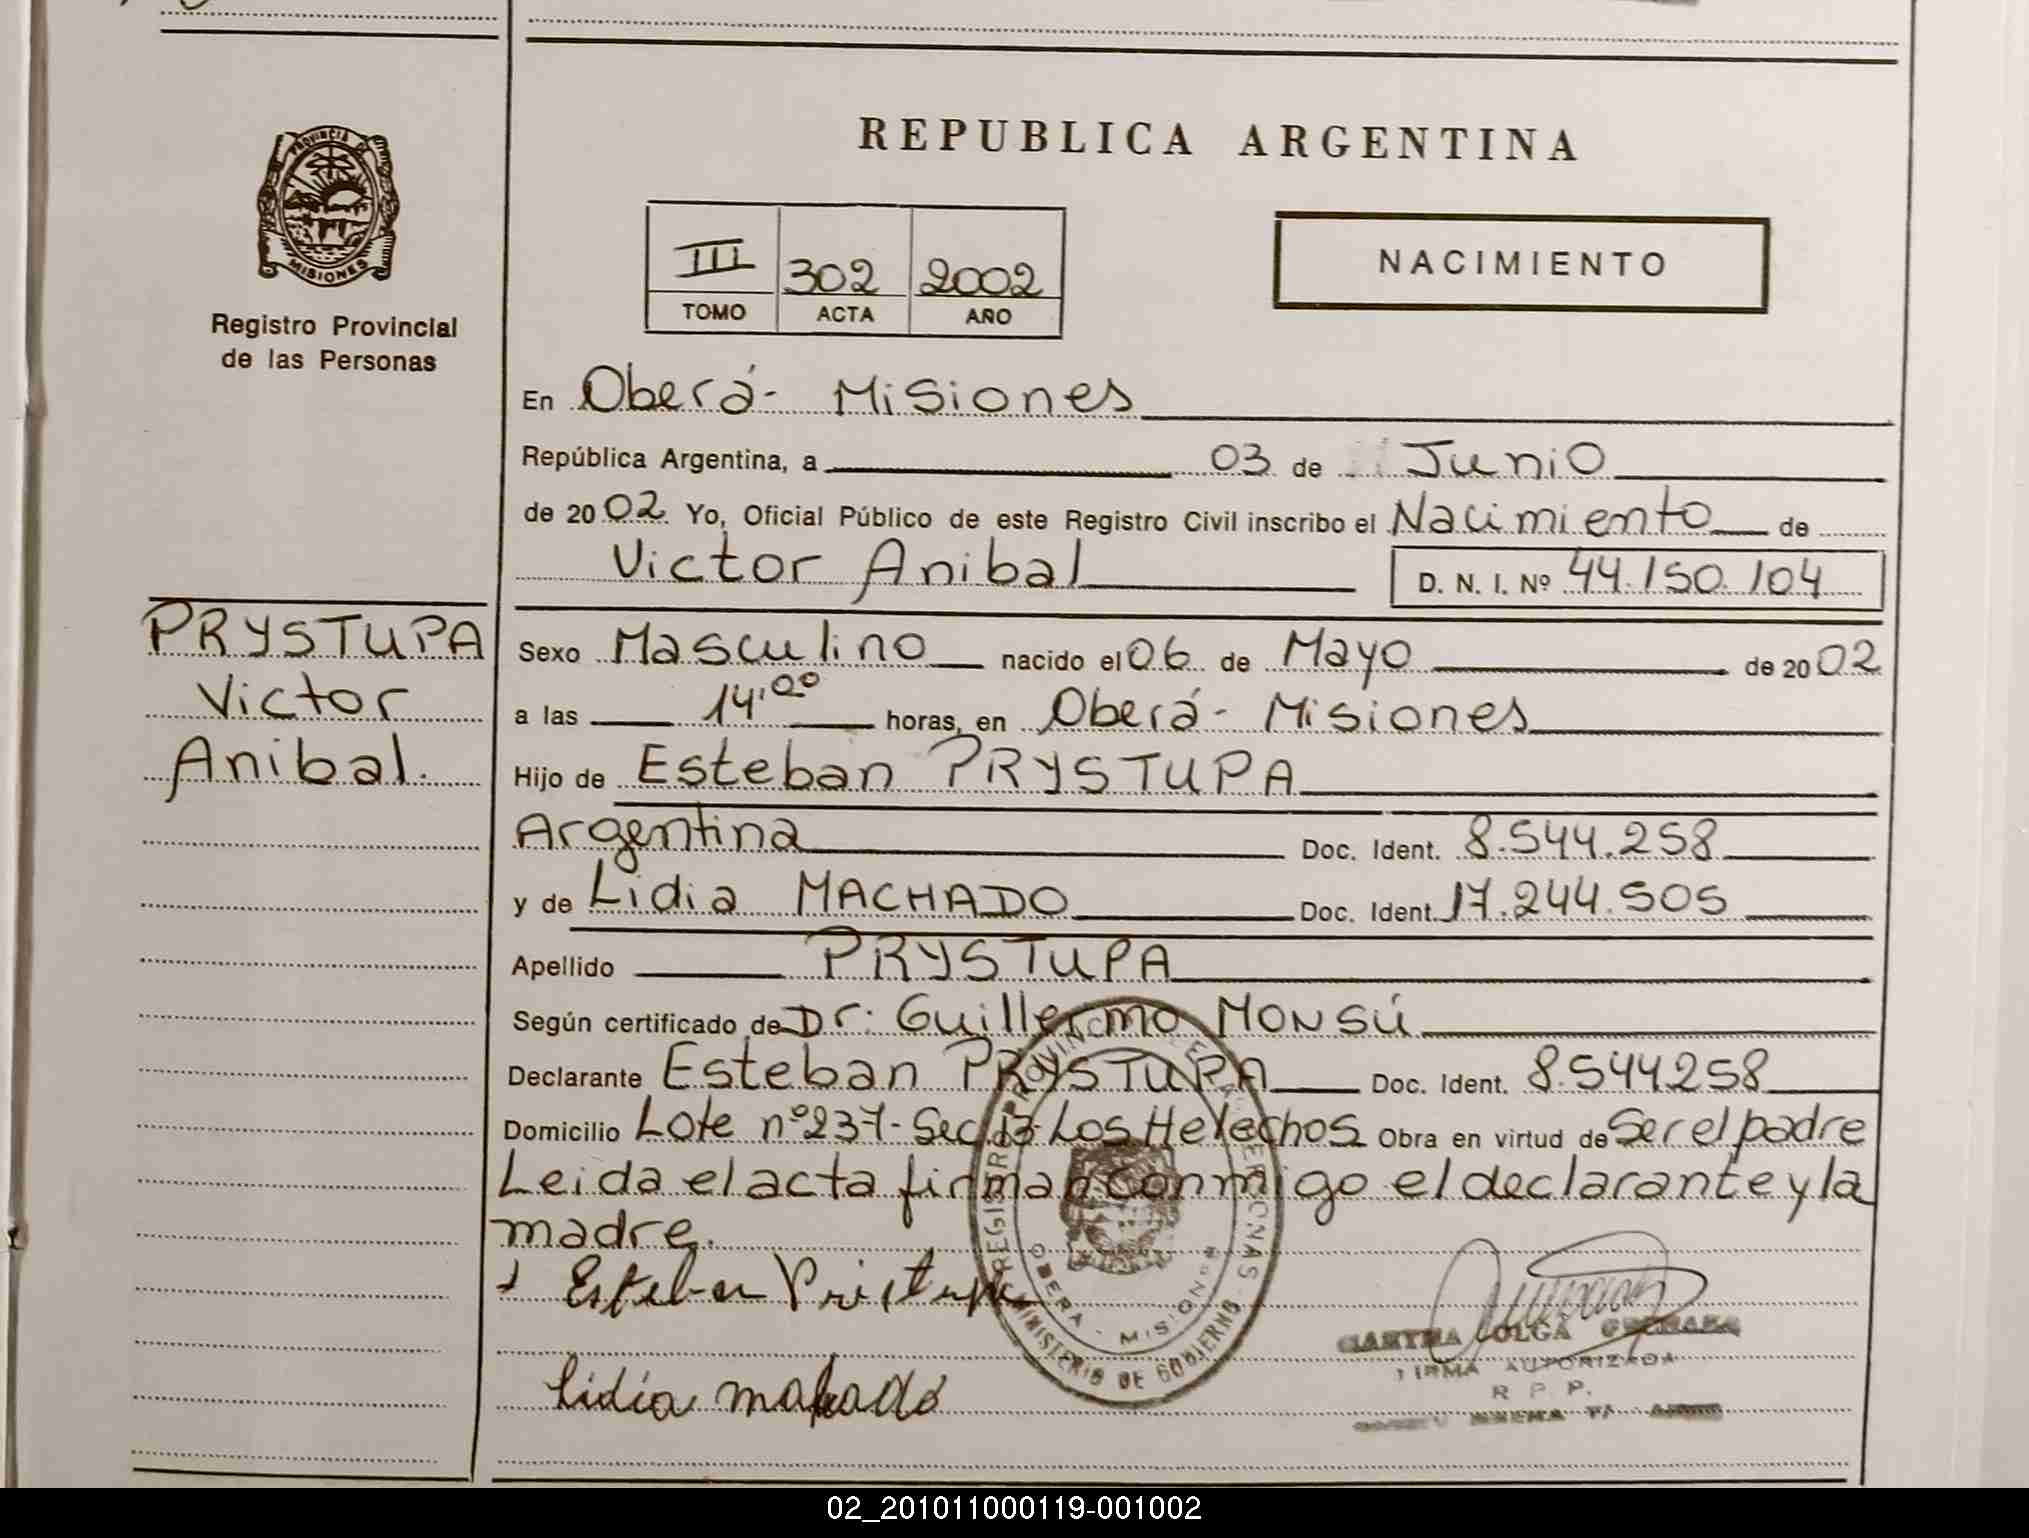 PROVINCIA DE
MISIONES
Registro Provincial
de las Personas
PRYSTUPA
Victor
Anibal.
REPUBLICA ARGENTINA
III 302 2002
TOMO ACTA AÑO
NACIMIENTO
En Oberá- Misiones
República Argentina, a 03 de Junio
de 2002. Yo, Oficial Público de este Registro Civil inscribo el Nacimiento de
Victor Anibal D. N. I. Nº 44.150.104
Sexo Masculino nacido el 06 de Mayo de 2002
a las 14,00 horas, en Oberá- Misiones
Hijo de Esteban PRYSTUPA
Argentina Doc. Ident. 8.544.258
y de Lidia MACHADO Doc. Ident. 17.244.505
Apellido PRYSTUPA
Según certificado de Dr. Guillermo MONSÚ
Declarante Esteban PRYSTUPA Doc. Ident. 8.544.258
Domicilio Lote nº 237- Secc 13- Los Helechos Obra en virtud de Ser el padre
Leida el acta firman conmigo el declarante y la
madre.
Esteban Pristupa
Lidia machado
REGISTRO PROVINCIAL DE LAS PERSONAS
MINISTERIO DE GOBIERNO
OBERA - MISIONES
MARTHA OLGA
FIRMA AUTORIZADA
R P P.
02_201011000119-001002